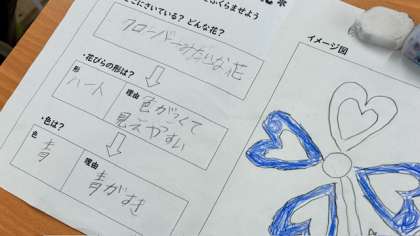 ふくらませよう
こにさいている?どんな花?
クローバーみたいな花
・花びらの形は?
形
ハート
理由
色がつくて
見えやすい
・色は?
色
青
理由
青がすき
イメージ図